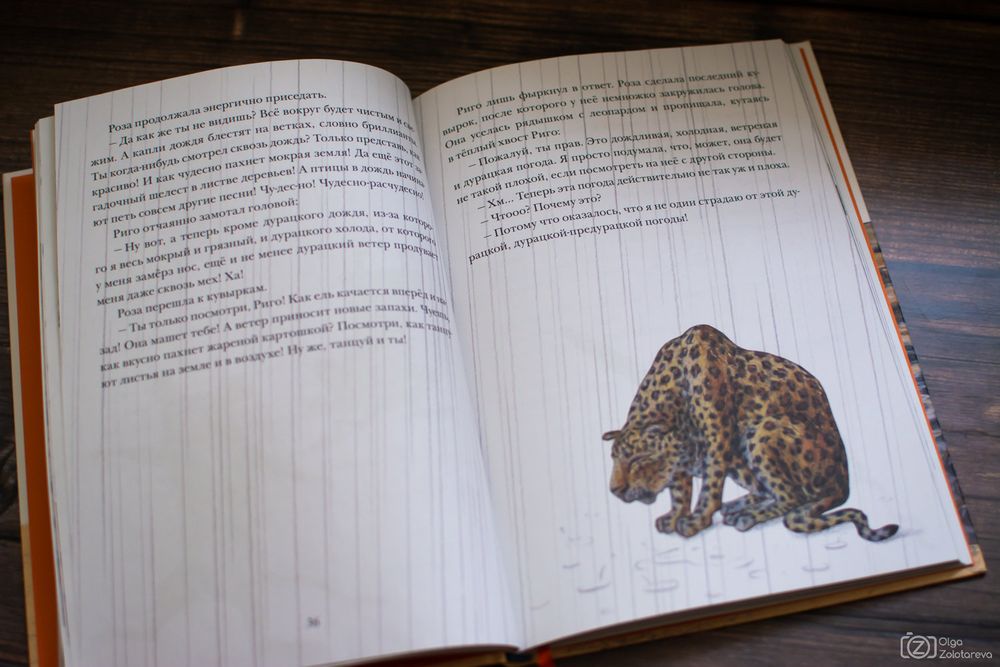 Роза продолжала энергично приседать.
– Да как же ты не видишь? Всё вокруг будет чистым и све-
жим. А капли дождя блестят на ветках, словно бриллианты.
Ты когда-нибудь смотрел сквозь дождь? Только представь, как
красиво! И как чудесно пахнет мокрая земля! Да ещё этот за-
гадочный шелест в листве деревьев! А птицы в дождь начина-
ют петь совсем другие песни! Чу-дес-но! Чудесно-расчудесно!
Риго отчаянно замотал головой:
– Ну вот, а теперь кроме дурацкого дождя, из-за которо-
го я весь мокрый и грязный, и дурацкого холода, от которого
у меня замёрз нос, ещё и не менее дурацкий ветер продувает
меня даже сквозь мех! Ха!
Роза перешла к кувыркам.
– Ты только посмотри, Риго! Как ель качается вперёд и на-
зад! Она машет тебе! А ветер приносит новые запахи. Чуешь,
как вкусно пахнет жареной картошкой? Посмотри, как танцу-
ют листья на земле и в воздухе! Ну же, танцуй и ты!
36
Риго лишь фыркнул в ответ. Роза сделала последний ку-
вырок, после которого у неё немножко закружилась голова.
Она уселась рядышком с леопардом и пропищала, кутаясь
в тёплый хвост Риго:
– Пожалуй, ты прав. Это дождливая, холодная, ветреная
и дурацкая погода. Я просто подумала, что, может, она будет
не такой плохой, если посмотреть на неё с другой стороны.
– Хм... Теперь эта погода действительно не так уж и плоха.
– Чтооо? Почему это?
– Потому что оказалось, что я не один страдаю от этой ду-
рацкой, дурацкой-предурацкой погоды!
Olga
Zolotareva